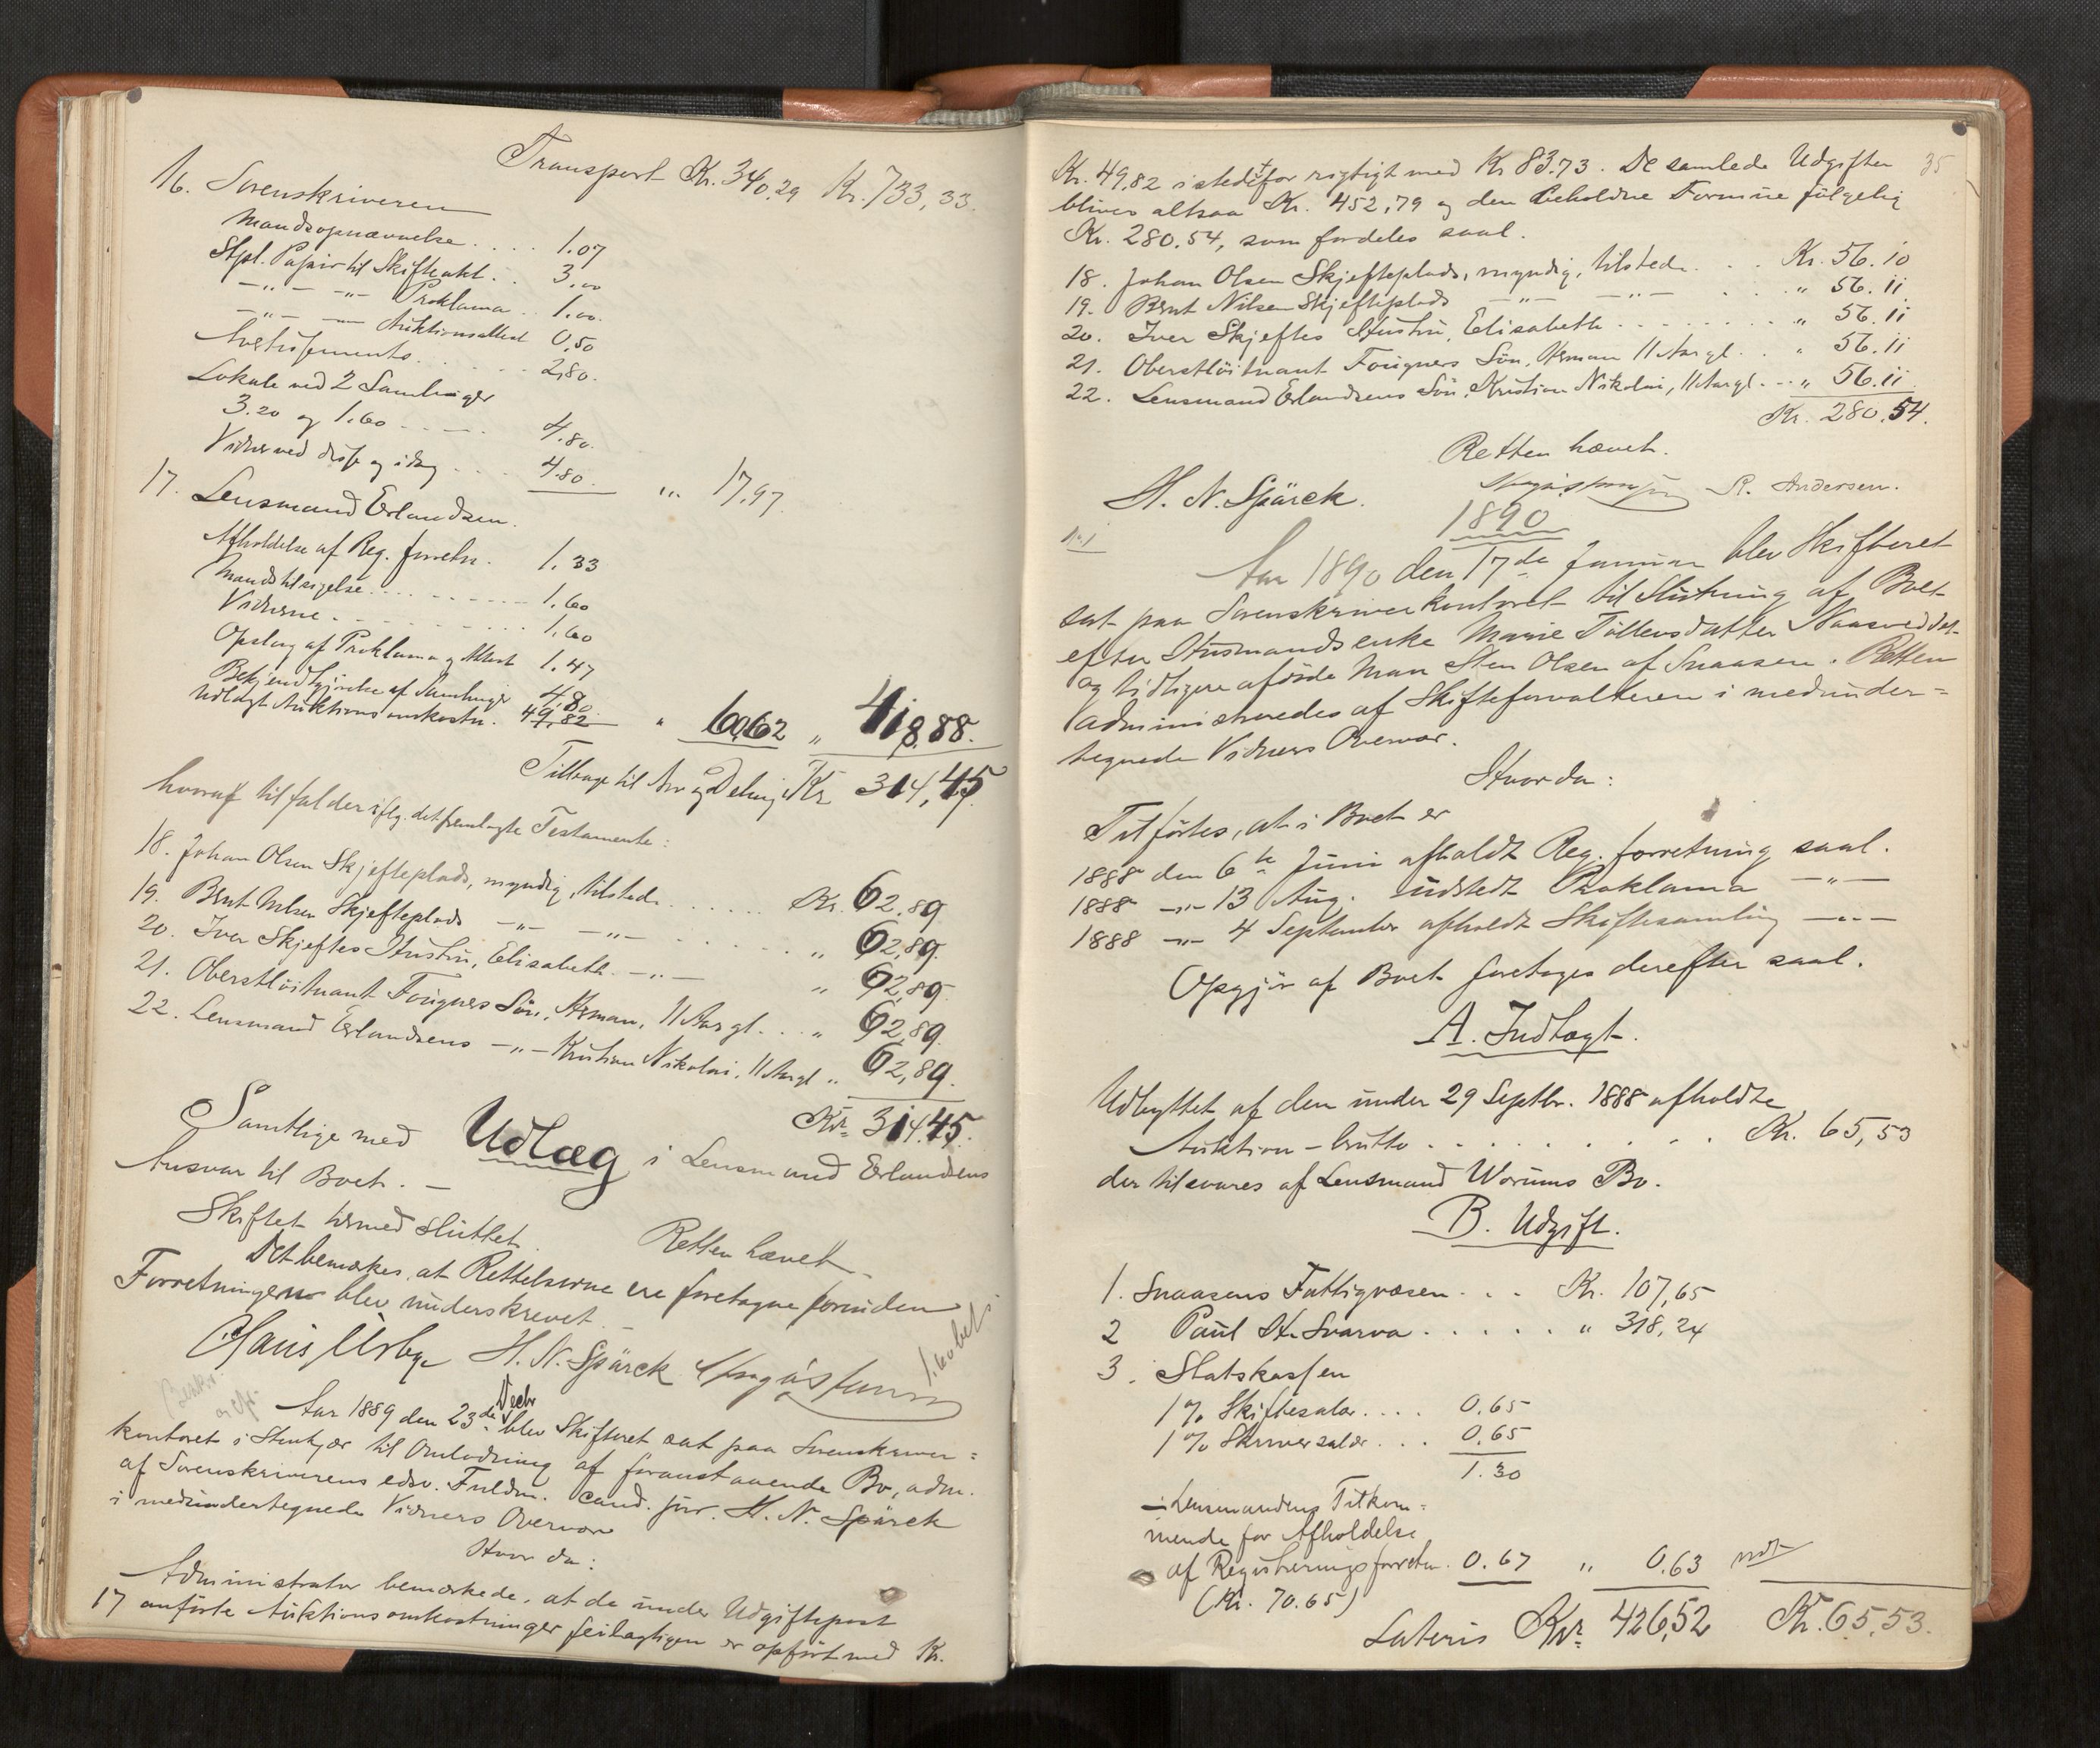 Transport Kr. 340.29 Kr. 733,33.
16. Sorenskriveren
Mandsopnævnelse . . . . 1.07
Stpl. Papir til Skifteakt . . 3.00
-"- -"- Proklama . 1.00.
-"- -"- Auktionsattest 0.50
Avertissements . . . . . . 2,80.
Lokale ved 2 Samlinger
3.20 og 1.60 - - - - - 4.80.
Vidner ved disse og idag . . . 4.80. "' 17,97.
17. Lensmand Erlandsen.
Afholdelse af Reg. forretn. 1.33
Mandstilsigelse . . . . . . . . 1.60
Vidnerne . . . . . . . . . . 1.60
Opslag af Proklama og Attest 1.47
Bekjendtgjørelse af Samlinger 4.80
Udlagt Auktionsomkostn. 49,82 " 60,62 " 418.88.
Tilbage til Arv og Deling Kr. 314,45.
hvoraf tilfalder iflg. det fremlagte Testamente:
18. Johan Olsen Skjefteplads, myndig, tilstede . . . . . . Kr. 62.89
19. Bernt Nilsen Skjefteplads -"- -"- . . . . . . " 62,89.
20. Iver Skjeftes Hustru, Elisabeth -"- " 62,89.
21. Oberstløitnant Fougners Søn, Herman, 11 Aar gl. . . " 62,89.
22. Lensmand Erlandsens -"- Kristian Nikolai, 11 Aar gl " 62,89.
Kr. 314.45.
Samtlige med Udlæg i Lensmand Erlandsens
Ansvar til Boet. -
Skiftet hermed sluttet. Retten hævet.
Det bemærkes, at Rettelserne ere foretagne forinden
Forretningen blev underskrevet.
H. N. Spärck
Aar 1889 den 23de Decbr blev Skifteret sat paa Sorenskriver=
kontoret i Stenkjær til Omlodning af foranstaaende Bo, adm.
af Sorenskriverens edsv. Fuldm. cand. jur. H. N. Spärck
i medundertegnede Vidners Overvær
Hvor da:
Administrator bemærkede, at de under Udgiftspost
17 anførte Auktionsomkostninger feilagtigen er opført med Kr.
35
Kr. 49.82 istedetfor rigtigt med Kr 83.73. De samlede Udgifter
bliver altsaa Kr. 452,79 og den beholdne Formue følgelig
Kr. 280.54, som fordeles saal.
18. Johan Olsen Skjefteplads, myndig, tilstede . . . Kr. 56.10
19. Bernt Nilsen Skjefteplads -"- -"- . . . " 56.11
20. Iver Skjeftes Hustru, Elisabeth . . . . . . . . " 56.11
21. Oberstløitnant Fougners Søn, Herman 11 Aar gl. . . " 56.11
22. Lensmand Erlandsens Søn, Kristian Nikolai, 11 Aar gl. . . " 56.11
Kr. 280.54.
Retten hævet.
H. N. Spärck. R. Andersen.
1890
Aar 1890 den 17de Januar blev Skifteret
sat paa Sorenskriverkontoret til Slutning af Boet
efter Husmandsenke Marie Tollevsdatter
og tidligere afdøde Man Sten Olsen af Snaasen. Retten
administreredes af Skifteforvalteren i medunder=
tegnede Vidners Overvær.
Hvor da:
Tilførtes, at i Boet er
1888 den 6te Juni afholdt Reg. forretning saal.
1888 -"- 13 Aug. udstedt Proklama -"-
1888 -"- 4 September afholdt Skiftesamling -"-
Opgjør af Boet foretages derefter saal.
A. Indtægt.
Udbyttet af den under 29 Septbr. 1888 afholdte
Auktion - brutto . . . . . . . . . . Kr. 65,53
der tilsvares af Lensmand Worums Bo.
B. Udgift.
1. Snaasens Fattigvæsen . . . Kr. 107,65
2 Paul H. Svarva . . . . . . " 318,24
3. Statskassen
1% Skiftesalær . . . . 0.65
1% Skriversalær . . . 0.65
1.30
÷ Lensmandens Tilkom=
mende for Afholdelse
af Registreringsforretn. 0.67 " 0.63
(Kr. 70.65)
Lateris Kr. 426,52 Kr. 65,53.